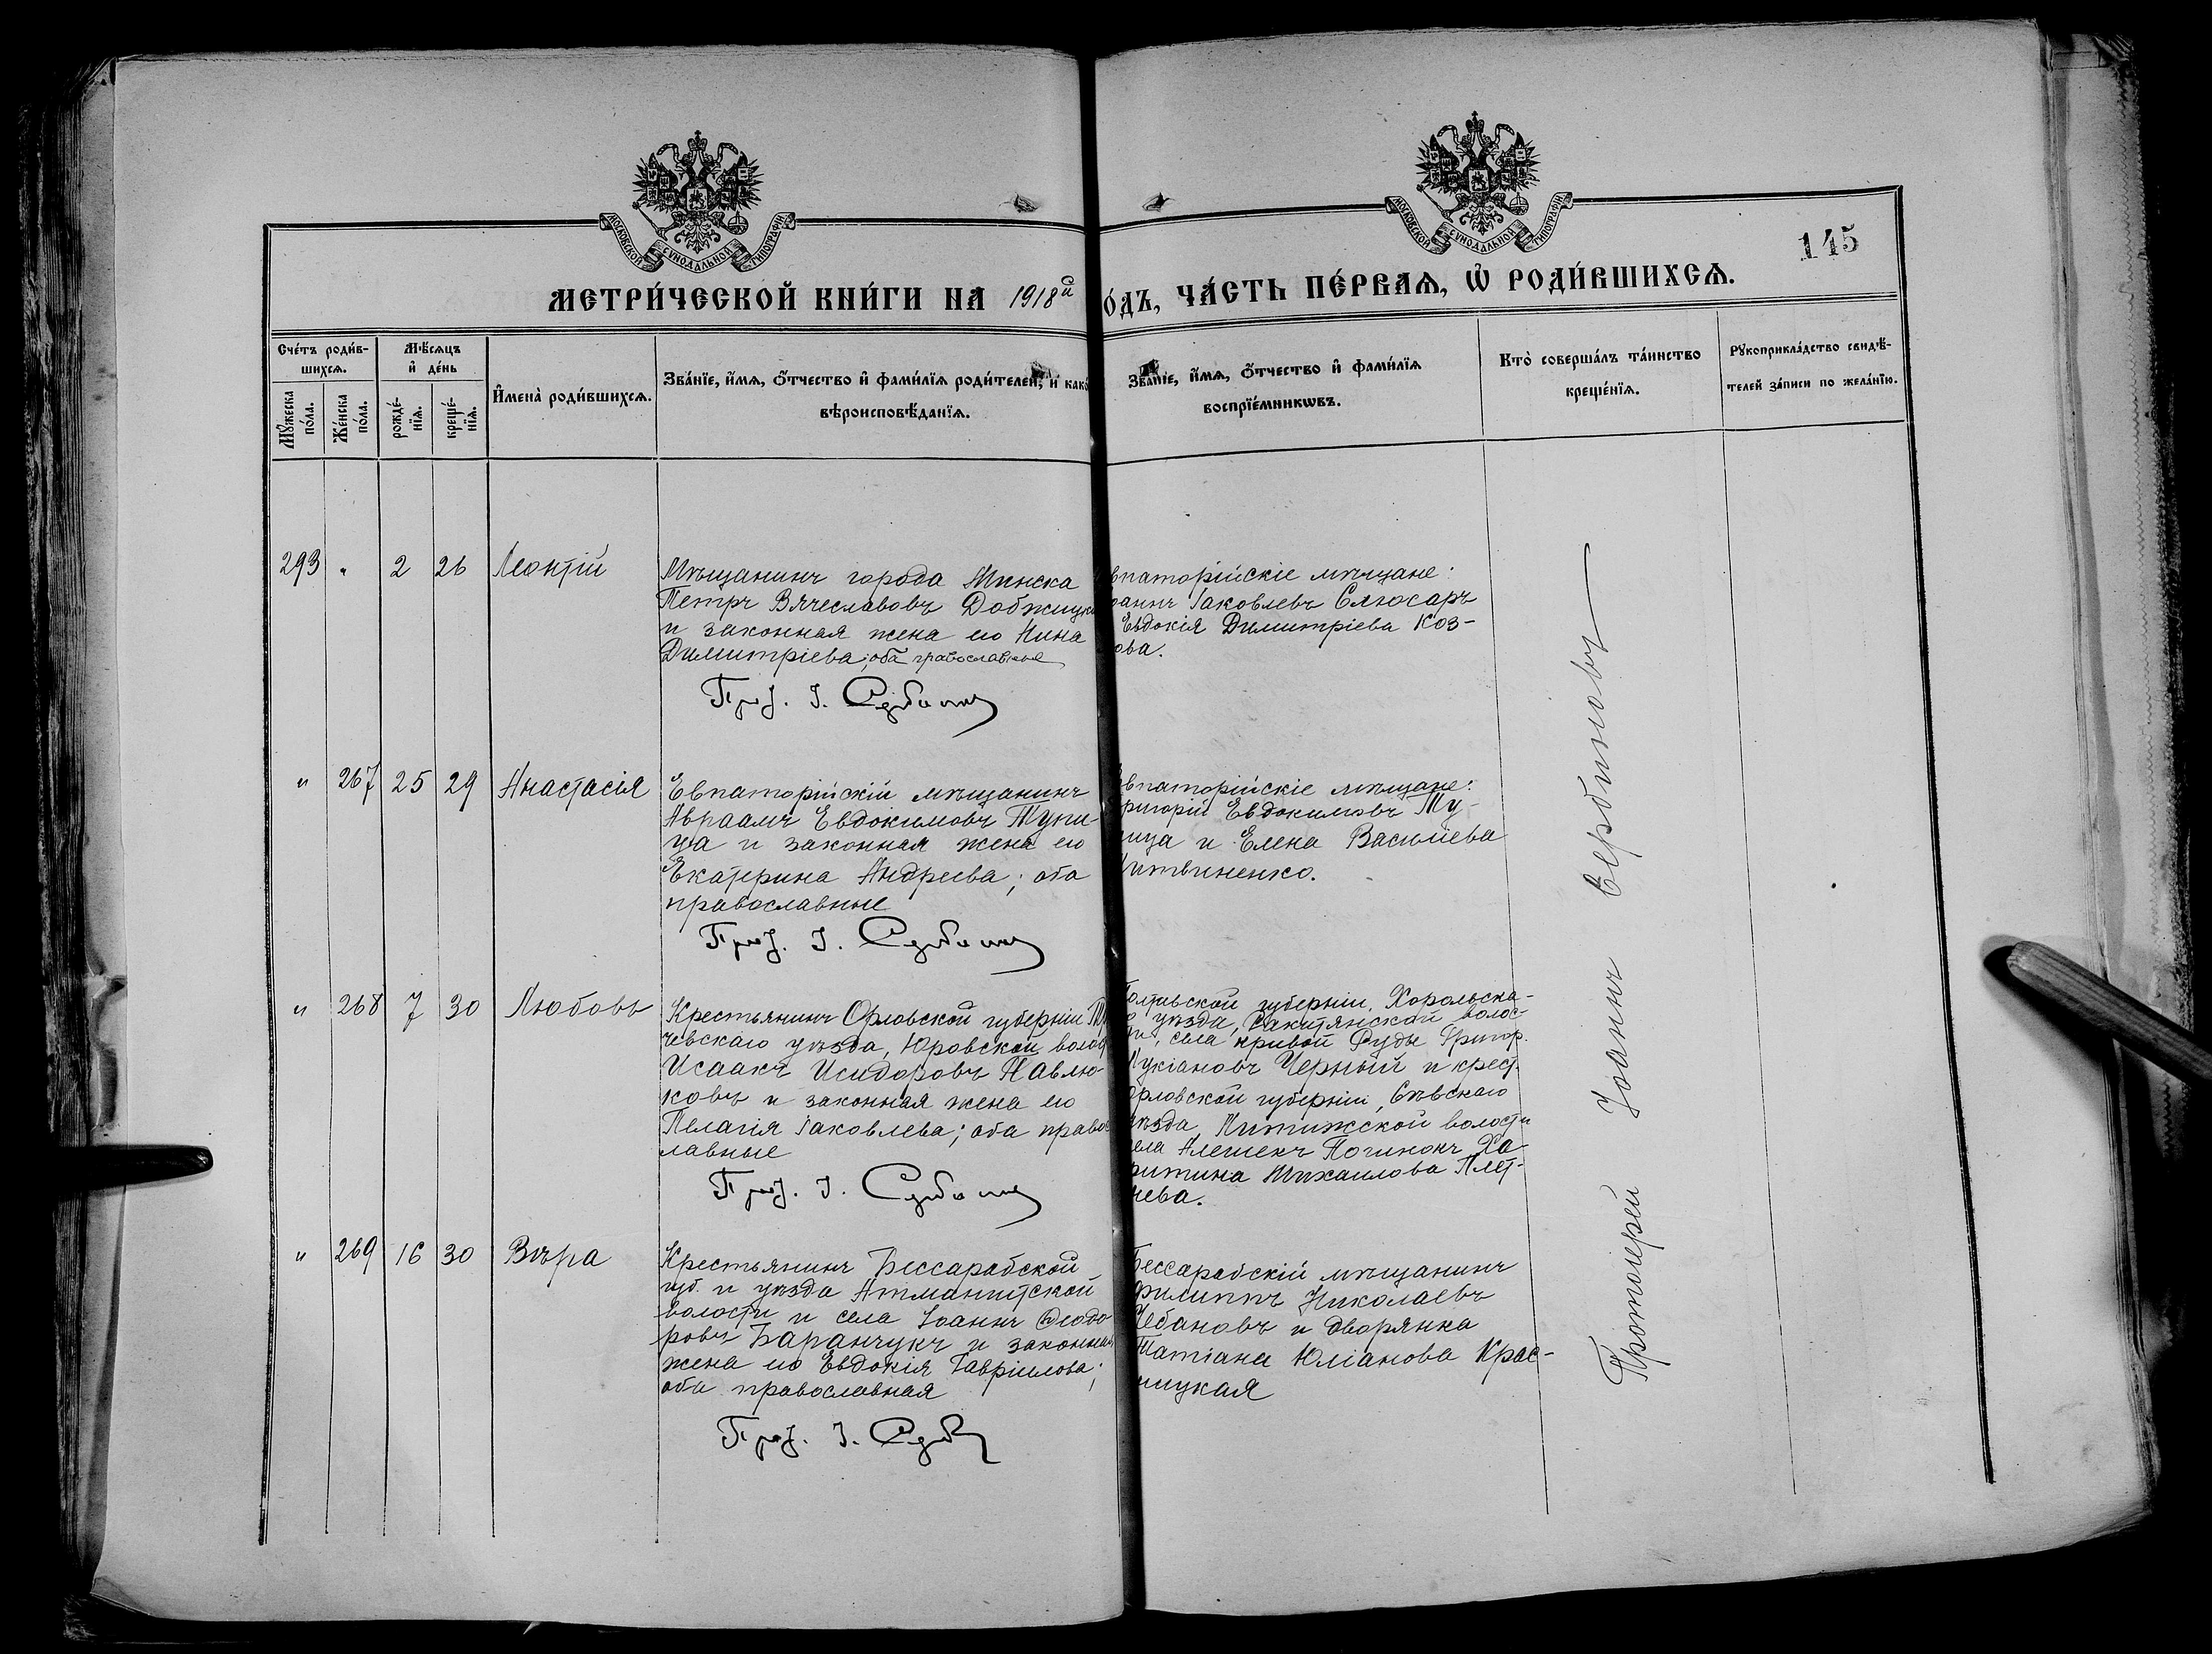 МОСКОВСКОЙ СУНОДАЛЬНОЙ ТИПОГРАФІИ
МОСКОВСКОЙ СУНОДАЛЬНОЙ ТИПОГРАФІИ
145
МЕТРИ́ЧЕСКОЙ КНИ́ГИ НА 1918й
О́ДЪ, ЧА́СТЬ ПЕ́РВАЯ, Ѡ РОДИ́ВШИХСѦ.
Сче́тъ роди́в-
шихсѧ.
Мꙋ́жеска по́ла.
Же́нска по́ла.
Мѣ́сѧцъ
и҆ де́нь
рожде́-
нїѧ.
креще́-
нїѧ.
И҆мена̀ роди́вшихсѧ.
Зва́нїе, и҆́мѧ, ѻ҆́тчество и҆ фами́лїѧ роди́телей, и како́
вѣроисповѣ́данїѧ.
Зва́нїе, и҆́мѧ, ѻ҆́тчество и҆ фами́лїѧ
воспрїе́мникѡвъ.
Кто̀ соверша́лъ та́инство
креще́нїѧ.
Рꙋкоприкла́дство свидѣ́-
телей за́писи по жела́нїю.
293 " 2 26 Леонтій
Мѣщанинъ города Минска
Петръ Вячеславовъ Добжицкі
и законная жена его Нина
Димитріева; оба православные
Прот. І. Сербиновъ
впаторійскіе мѣщане:
оаннъ Іаковлевъ Слюсарь
Евдокія Димитріева Коз-
ова.
" 267 25 29 Анастасія
Евпаторійскій мѣщанинъ
Авраамъ Евдокимовъ Тупи-
ца и законная жена его
Екатерина Андреева; оба
православные
Прот. І. Сербиновъ
впаторійскіе мѣщане:
ригорій Евдокимовъ Ту-
пица и Елена Васильева
Литвиненко.
" 268 7 30 Любовь
Крестьянинъ Орловской губерніи
чевскаго уѣзда, Юровской волос
Исаакъ Исидоровъ Навлю-
ковъ и законная жена его
Пелагія Іаковлева; оба право
лавные
Прот. І. Сербиновъ
Полтавской губерніи, Хорольска-
уѣзда, волос-
ти, села Кривой Руды Григор.
Лукіановъ Черный и крест.
Орловской губерніи, Сѣвскаго
уѣзда, волости
села Алешекъ Починокъ Ха-
ритина Михаилова Плет-
нева.
" 269 16 30 Вѣра
Крестьянинъ Бессарабской
губ. и уѣзда
волости и села Іоаннъ Ѳеодо-
ровъ Баранчукъ и законная
жена его Евдокія Гавріилова;
оба православная
Прот. І. Серб
Бессарабскій мѣщанинъ
Филиппъ Николаевъ
Чебановъ и дворянка
Татіана Юліанова Крас-
ницкая
Протоіерей Іоаннъ Сербиновъ